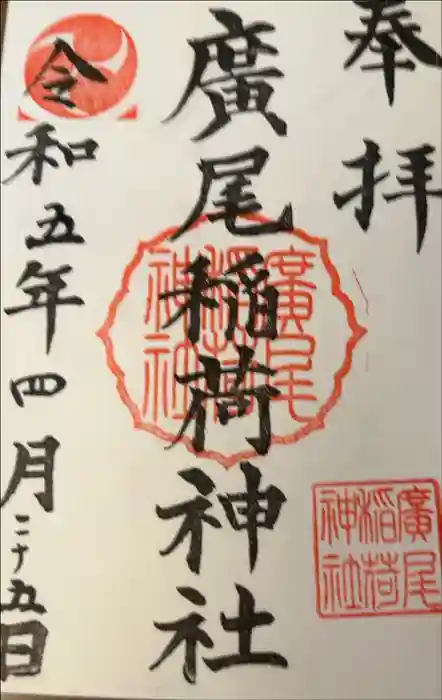 奉拝
廣尾稲荷神社
令和五年四月二十五日
廣尾
稲荷
神社
廣尾
稲荷
神社